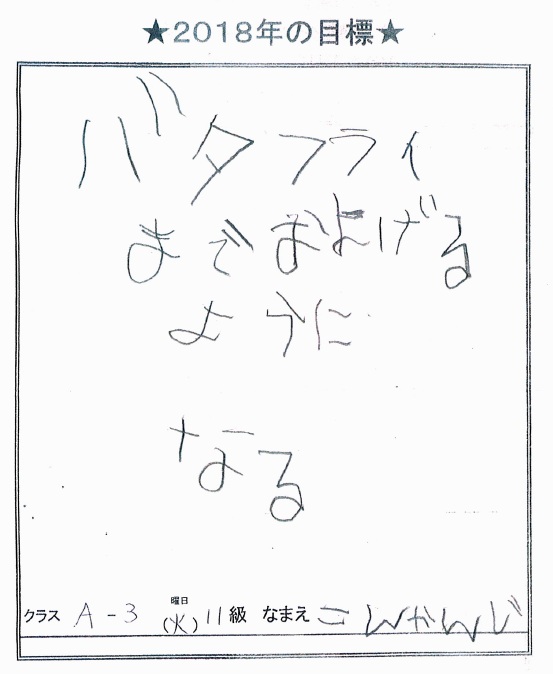 ★2018年の目標★
バタフライ
までおよげる
ように
なる
クラス A-3 曜日 (火) 11級 なまえ